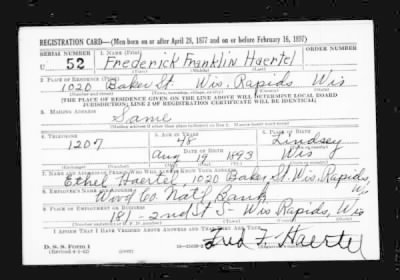 REGISTRATION CARD—(Men born on or after April 28, 1877 and on or before February 16, 1897)
SERIAL NUMBER 1. NAME (Print) ORDER NUMBER
U 52 Frederick Franklin Haertel
(First) (Middle) (Last)
2. PLACE OF RESIDENCE (Print)
1020 Baker St. Wis. Rapids Wis
(Number and street) (Town, township, village, or city) (County) (State)
[THE PLACE OF RESIDENCE GIVEN ON THE LINE ABOVE WILL DETERMINE LOCAL BOARD
JURISDICTION; LINE 2 OF REGISTRATION CERTIFICATE WILL BE IDENTICAL]
3. MAILING ADDRESS
Same
[Mailing address if other than place indicated on line 2. If same insert word same]
4. TELEPHONE 5. AGE IN YEARS 6. PLACE OF BIRTH
1207 48 Lindsey
DATE OF BIRTH
Aug 19 1893 Wis
(Exchange) (Number) (Mo.) (Day) (Yr.) (State or country)
7. NAME AND ADDRESS OF PERSON WHO WILL ALWAYS KNOW YOUR ADDRESS
Ethel Haertel, 1020 Baker St. Wis. Rapids,
8. EMPLOYER'S NAME AND ADDRESS
Wood Co. Nat'l Bank
9. PLACE OF EMPLOYMENT OR BUSINESS
181 - 2nd St S. Wis Rapids, Wis
(Number and street or R. F. D. number) (Town) (County) (State)
I AFFIRM THAT I HAVE VERIFIED ABOVE ANSWERS AND THAT THEY ARE TRUE.
D. S. S. Form 1
(Revised 4-1-42) Fred F. Haertel